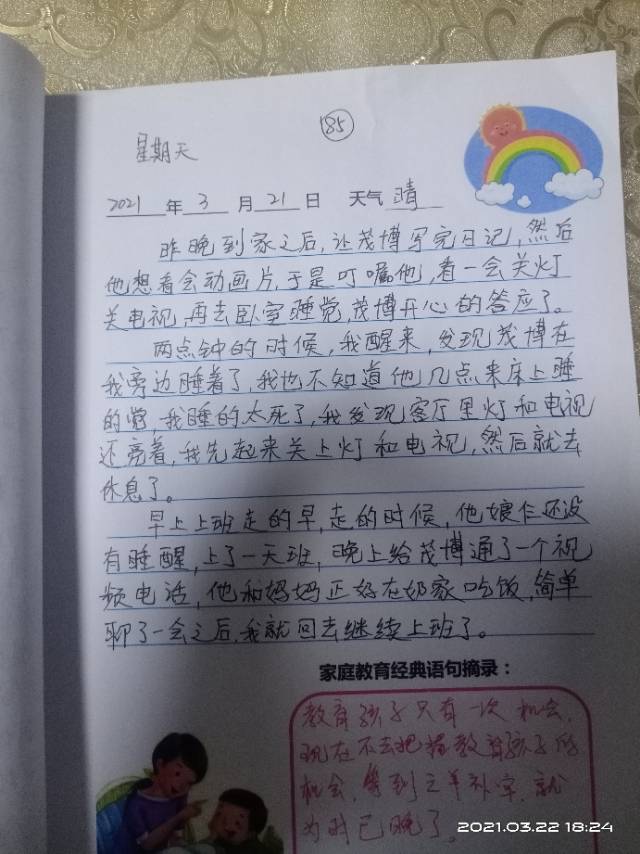 185
星期天
2021 年 3 月 21 日 天气 晴
昨晚到家之后,让茂博写完日记,然后
他想看会动画片,于是叮嘱他,看一会关灯
关电视,再去卧室睡觉,茂博开心的答应了。
两点钟的时候,我醒来,发现茂博在
我旁边睡着了,我也不知道他几点来床上睡
的觉,我睡的太死了,我发现客厅里灯和电视
还亮着,我先起来关上灯和电视,然后就去
休息了。
早上上班走的早,走的时候,他娘仨还没
有睡醒,上了一天班,晚上给茂博通了一个视
频电话,他和妈妈正好在奶家吃饭,简单
聊了一会之后,我就回去继续上班了。
家庭教育经典语句摘录:
教育孩子只有一次机会,
现在不去把握教育孩子的
机会,等到亡羊补牢,就
为时已晚了。
2021.03.22 18:24